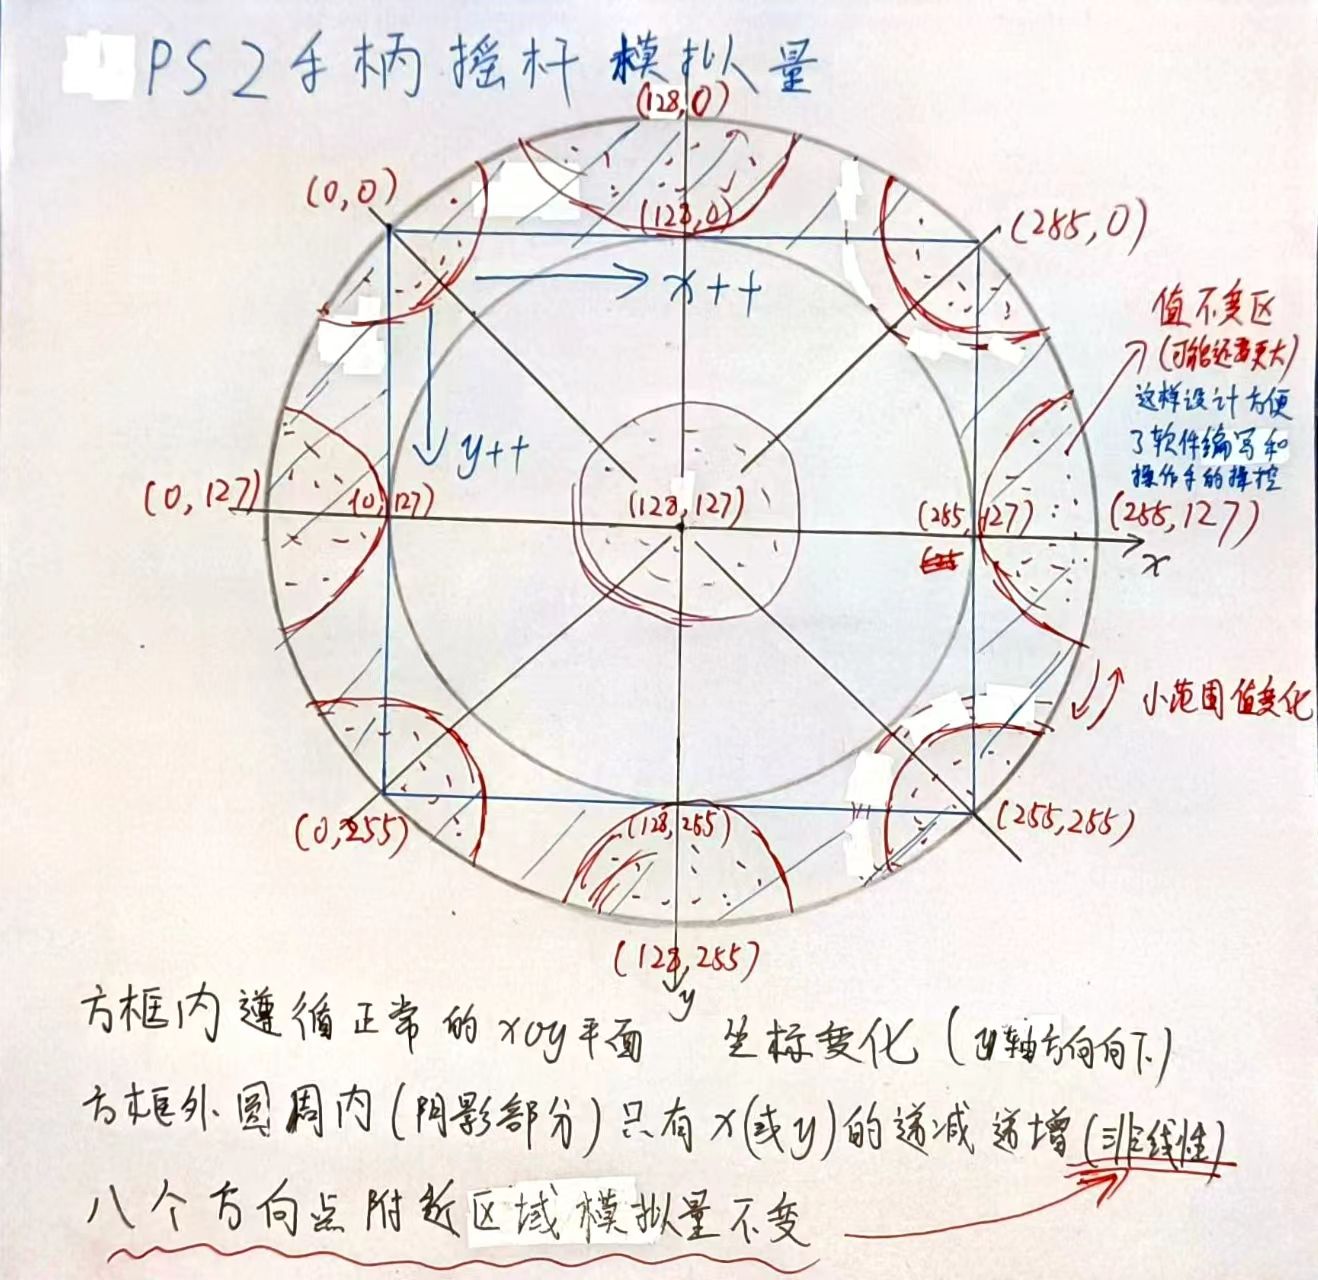 PS2手柄摇杆模拟量
(128,0)
(0,0)
(128,0)
(285,0)
x++
值不变区
(可能还要更大)
这样设计方便
了软件编写和
操作手的操控
y++
(0,127)
(0,127)
(128,127)
(255,127)
(255,127)
x
小范围值变化
(0,255)
(128,255)
(255,255)
(128,255)
y
方框内遵循正常的xoy平面 坐标变化(y轴方向向下)
方框外圆周内(阴影部分)只有x(或y)的递减递增(非线性)
八个方向点附近区域模拟量不变